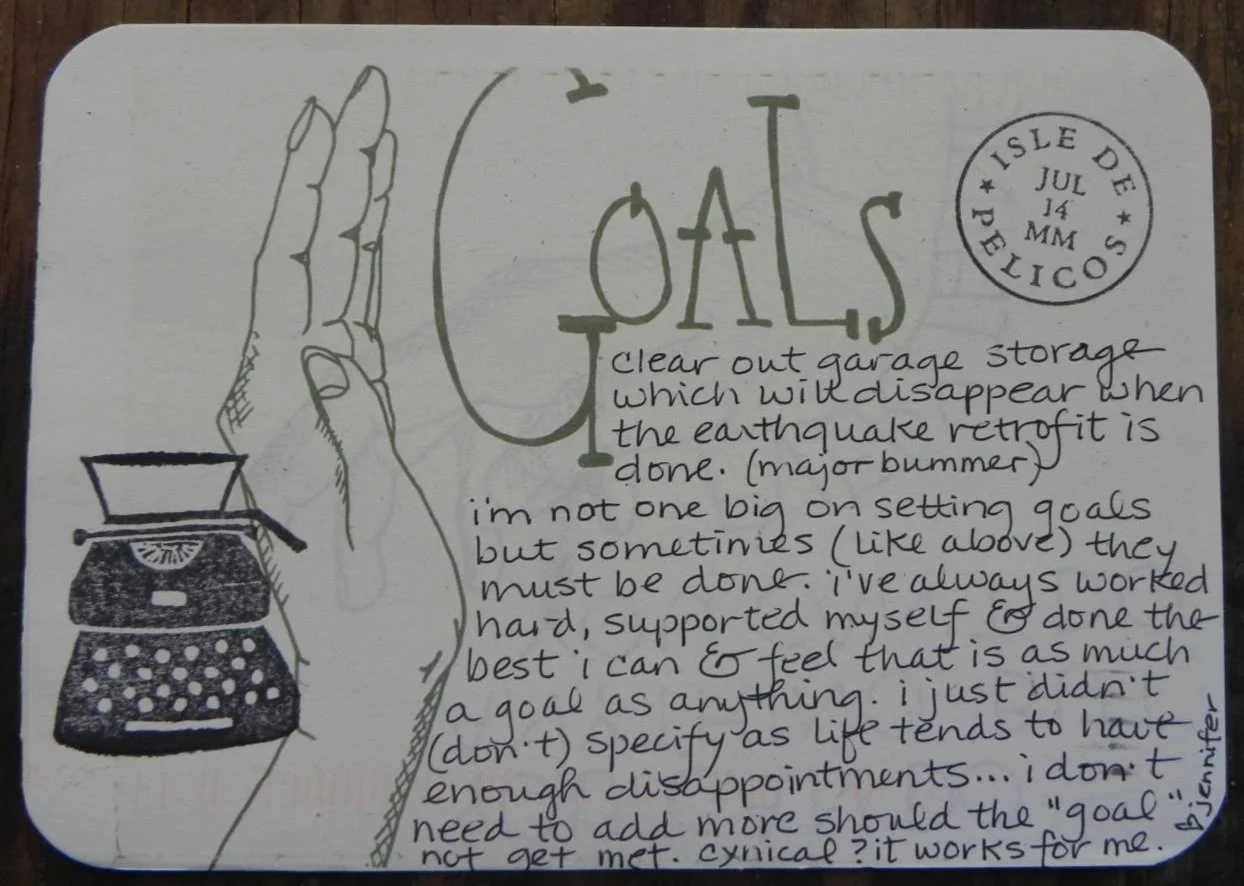 GOALS
ISLE DE
JUL
14
MM
PELICOS
clear out garage storage
which will disappear when
the earthquake retrofit is
done. (major bummer)
i'm not one big on setting goals
but sometimes (like above) they
must be done. i've always worked
hard, supported myself & done the
best i can & feel that is as much
a goal as anything. i just didn't
(don't) specify as life tends to have
enough disappointments... i don't
need to add more should the "goal"
not get met. cynical? it works for me.
jennifer